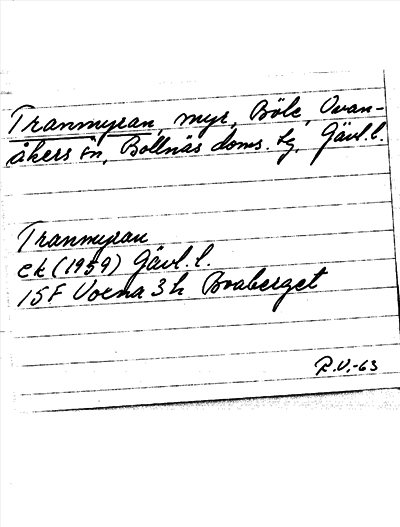 Tranmyran, myr, Böle, Ovan-
åkers sn, Bollnäs doms. tg, Gävl. l.
Tranmyran
ek (1959) Gävl. l.
15F Voxna 3h Broaberget
R.V.-63